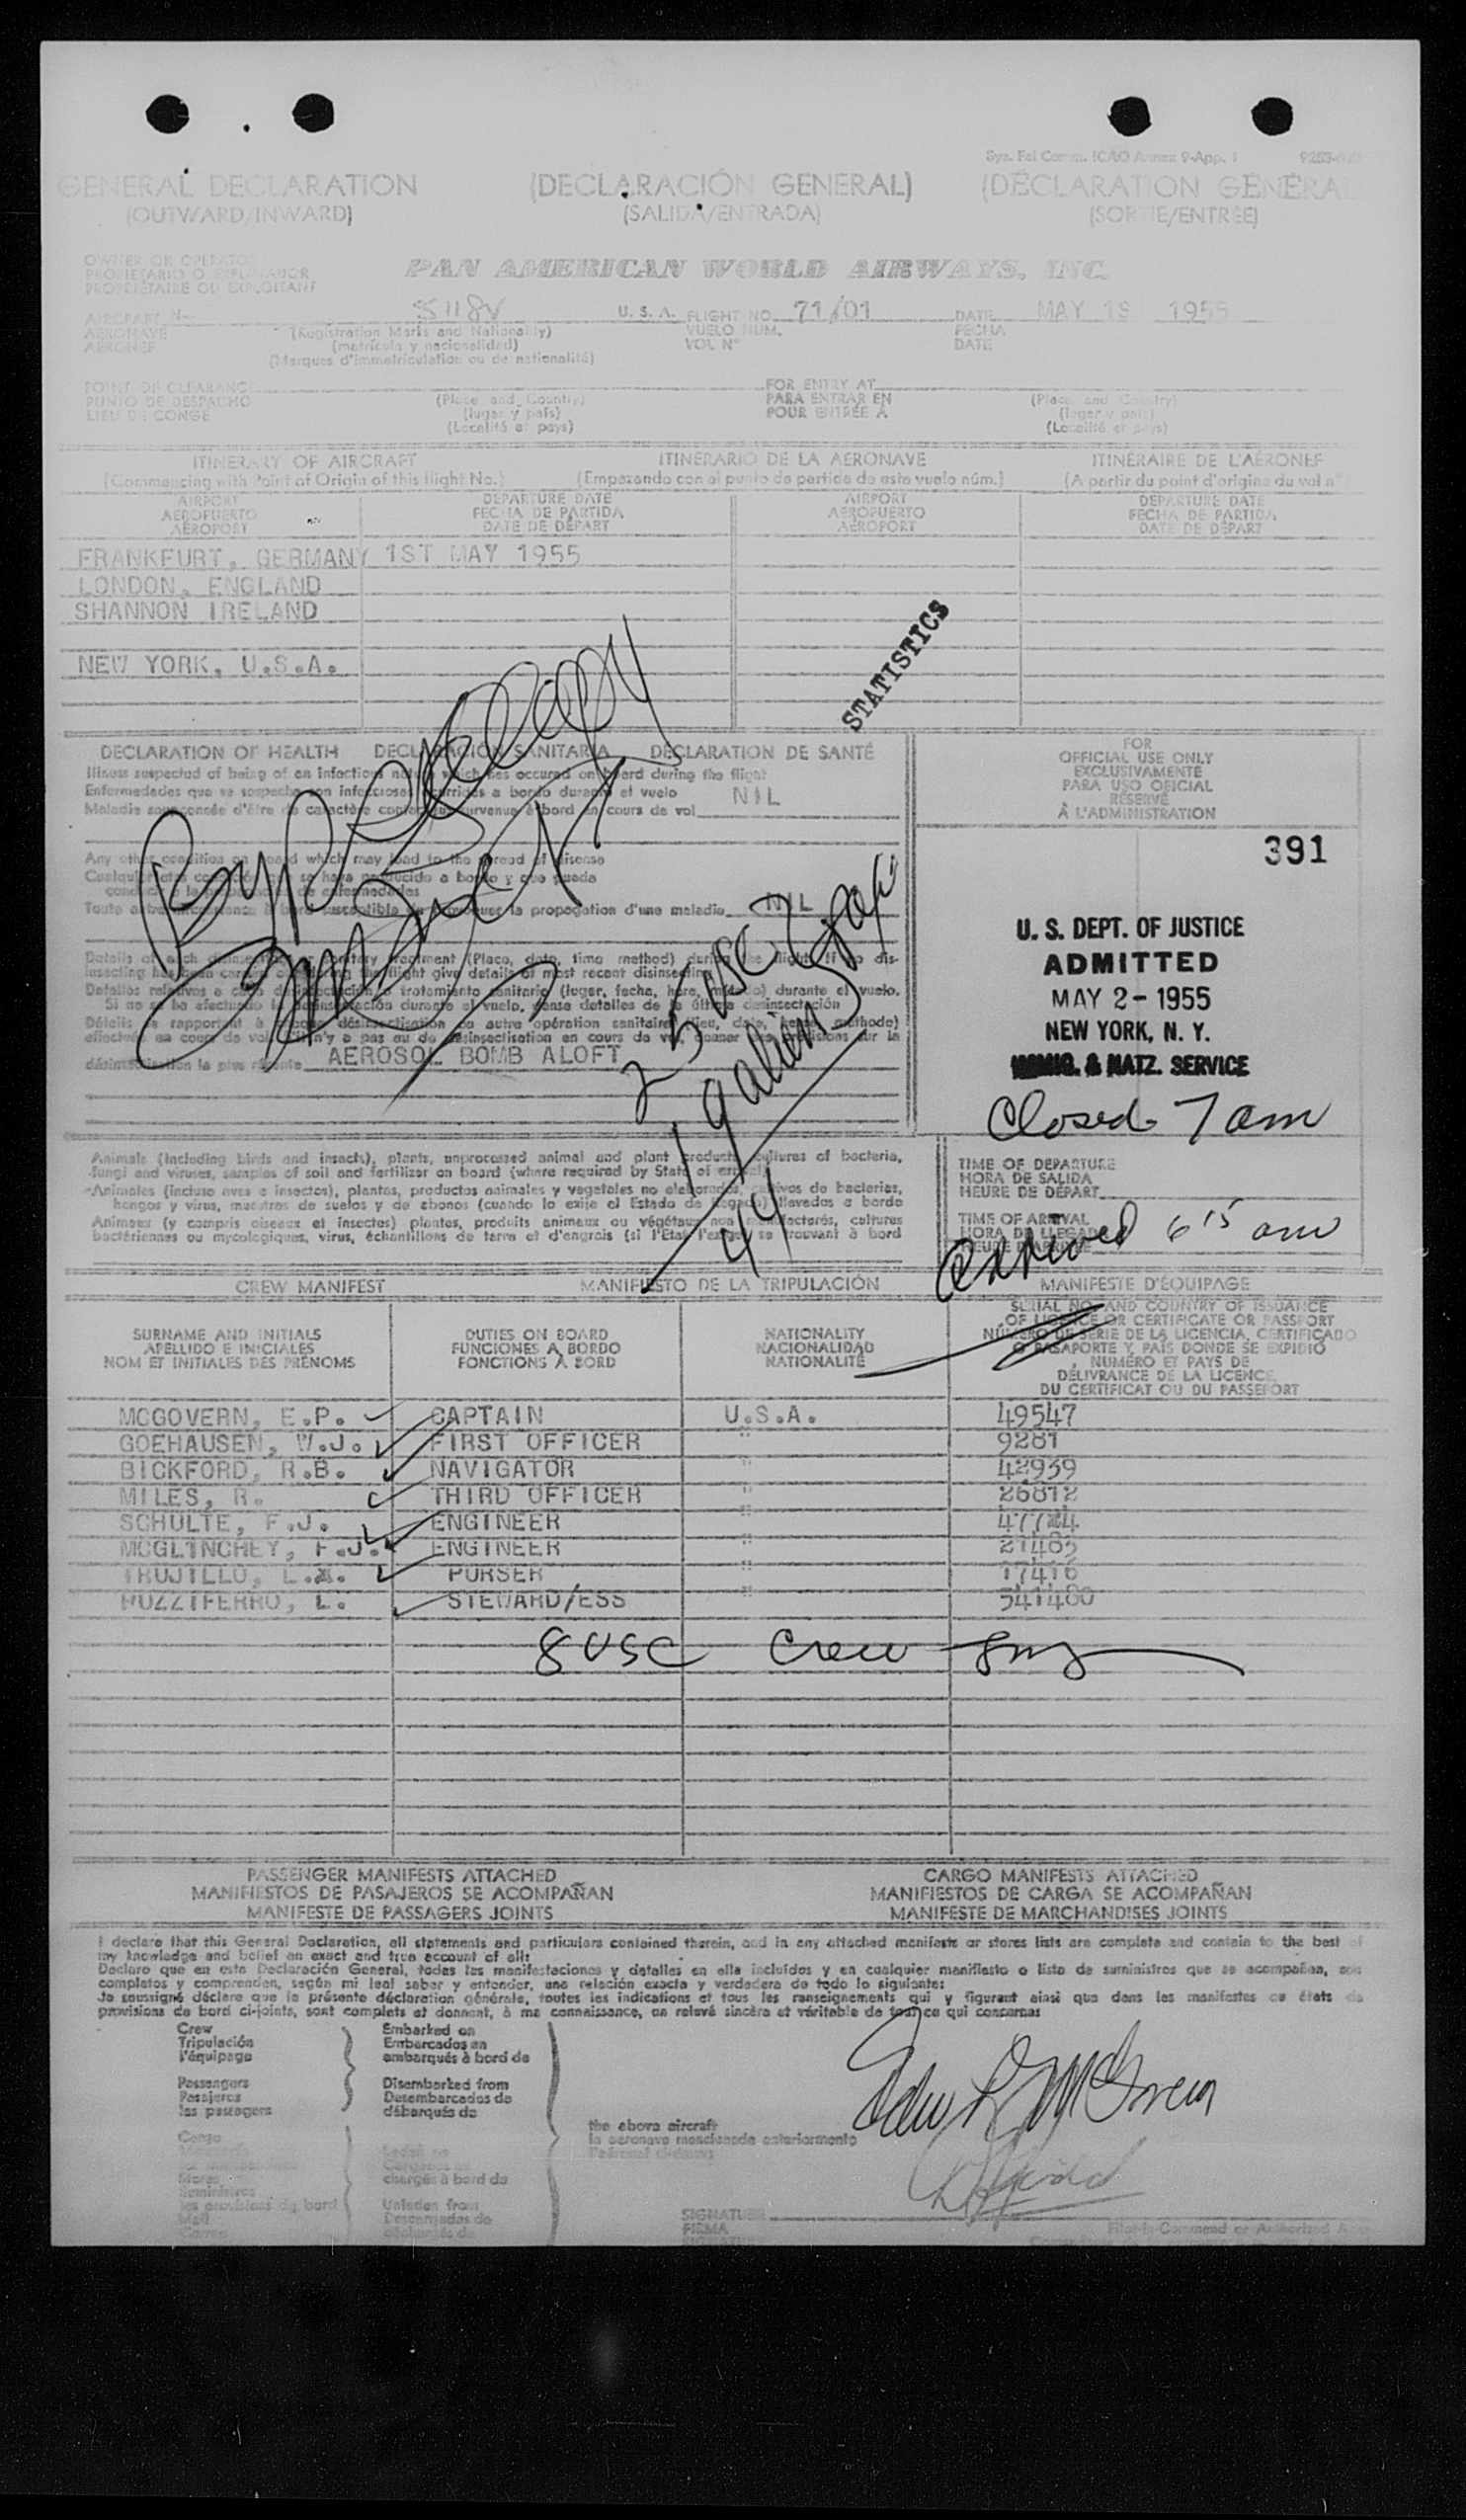 Sys. Fel Comm. ICAO Annex 9-App. 1
GENERAL DECLARATION (DECLARACIÓN GENERAL) (DÉCLARATION GÉNÉRA
(OUTWARD/INWARD) (SALIDA/ENTRADA) (SORTIE/ENTRÉE)
OWNER OR OPERATOR
PROPIETARIO O EXPLOTADOR PAN AMERICAN WORLD AIRWAYS, INC.
PROPRIÉTAIRE OU EXPLOITANT
AIRCRAFT N- U. S. A. FLIGHT NO. 71/01 DATE MAY 1S 1955
AERONAVE (Registration Marks and Nationality) VUELO NUM. FECHA
AÉRONEF (matrícula y nacionalidad) VOL N° DATE
(Marques d'immatriculation ou de nationalité)
POINT OF CLEARANCE FOR ENTRY AT
PUNTO DE DESPACHO (Place and Country) PARA ENTRAR EN (Place and Country)
LIEU DE CONGÉ (lugar y país) POUR ENTRÉE À (lugar y país)
(Localité et pays) (Localité et pays)
ITINERARY OF AIRCRAFT ITINERARIO DE LA AERONAVE ITINÉRAIRE DE L'AÉRONEF
(Commencing with Point of Origin of this flight No.) (Empezando con el punto de partida de este vuelo núm.) (A partir du point d'origine du vol n°
AIRPORT DEPARTURE DATE AIRPORT DEPARTURE DATE
AEROPUERTO FECHA DE PARTIDA AEROPUERTO FECHA DE PARTIDA
AÉROPORT DATE DE DÉPART AÉROPORT DATE DE DÉPART
FRANKFURT, GERMANY 1ST MAY 1955
LONDON, ENGLAND
SHANNON IRELAND
NEW YORK, U.S.A.
STATISTICS
DECLARATION OF HEALTH DECLARACIÓN SANITARIA DÉCLARATION DE SANTÉ
Illness suspected of being of an infectious nature which has occured on board during the flight
Enfermedades que se sospecha son infecciosas ocurridas a bordo durante el vuelo NIL
Maladie soupçonnée d'être de caractère contagieux survenue à bord en cours de vol
FOR
OFFICIAL USE ONLY
EXCLUSIVAMENTE
PARA USO OFICIAL
RÉSERVÉ
À L'ADMINISTRATION
391
Any other condition on board which may lead to the spread of disease
Cualquier otra condición que se haya producido a bordo y que pueda
conducir a la propagación de enfermedades
Toute autre circonstance à bord susceptible de provoquer la propagation d'une maladie NIL
Details of each disinsecting or sanitary treatment (Place, date, time method) during the flight. If no dis-
insecting has been carried out during the flight give details of most recent disinsecting
Detalles relativos a cada desinsectación o tratamiento sanitario (lugar, fecha, hora, método) durante el vuelo.
Si no se ha efectuado la desinsectación durante el vuelo, dense detalles de la última desinsectación
Détails se rapportant à chaque désinsectisation ou autre opération sanitaire (lieu, date, heure, méthode)
effectuée au cours de vol. S'il n'y a pas eu de désinsectisation en cours de vol, donner des précisions sur la
désinsectisation la plus récente AEROSOL BOMB ALOFT
25 USC
44
U. S. DEPT. OF JUSTICE
ADMITTED
MAY 2- 1955
NEW YORK, N. Y.
IMMIG. & NATZ. SERVICE
Closed 7 am
Animals (including birds and insects), plants, unprocessed animal and plant products, cultures of bacteria,
fungi and viruses, samples of soil and fertilizer on board (where required by State of arrival)
Animales (incluso aves e insectos), plantas, productos animales y vegetales no elaborados, cultivos de bacterias,
hongos y virus, muestras de suelos y de abonos (cuando lo exije el Estado de llegada) llevados a bordo
Animaux (y compris oiseaux et insectes) plantes, produits animaux ou végétaux non manufacturés, cultures
bactériennes ou mycologiques, virus, échantillons de terre et d'engrais (si l'Etat l'exige) se trouvant à bord
TIME OF DEPARTURE
HORA DE SALIDA
HEURE DE DÉPART
TIME OF ARRIVAL
HORA DE LLEGADA
HEURE D'ARRIVÉE
Arrived 6 15 am
CREW MANIFEST MANIFIESTO DE LA TRIPULACIÓN MANIFESTE D'ÉQUIPAGE
SURNAME AND INITIALS DUTIES ON BOARD NATIONALITY
APELLIDO E INICIALES FUNCIONES A BORDO NACIONALIDAD
NOM ET INITIALES DES PRÉNOMS FONCTIONS À BORD NATIONALITÉ
SERIAL NO. AND COUNTRY OF ISSUANCE
OF LICENCE OR CERTIFICATE OR PASSPORT
NÚMERO DE SERIE DE LA LICENCIA, CERTIFICADO
O PASAPORTE Y PAÍS DONDE SE EXPIDIÓ
NUMÉRO ET PAYS DE
DÉLIVRANCE DE LA LICENCE
DU CERTIFICAT OU DU PASSEPORT
MCGOVERN, E.P. CAPTAIN U.S.A. 49547
GOEHAUSEN, W.J. FIRST OFFICER " 9281
BICKFORD, R.B. NAVIGATOR " 42939
MILES, R. THIRD OFFICER " 26812
SCHULTE, F.J. ENGINEER "
MCGLINCHEY, F.J. ENGINEER " 21485
TRUJILLO, L. PURSER " 17416
PUZZIFERRO, L. STEWARD/ESS " 541480
8 USC Crew
PASSENGER MANIFESTS ATTACHED CARGO MANIFESTS ATTACHED
MANIFIESTOS DE PASAJEROS SE ACOMPAÑAN MANIFIESTOS DE CARGA SE ACOMPAÑAN
MANIFESTE DE PASSAGERS JOINTS MANIFESTE DE MARCHANDISES JOINTS
I declare that this General Declaration, all statements and particulars contained therein, and in any attached manifests or stores lists are complete and contain to the best of
my knowledge and belief an exact and true account of all:
Declaro que en esta Declaración General, todas las manifestaciones y detalles en ella incluídos y en cualquier manifiesto o lista de suministros que se acompañan, son
completos y comprenden, según mi leal saber y entender, una relación exacta y verdadera de todo lo siguiente:
Je soussigné déclare que la présente déclaration générale, toutes les indications et tous les renseignements qui y figurent ainsi que dans les manifestes ou états de
provisions de bord ci-joints, sont complets et donnent, à ma connaissance, un relevé sincère et véritable de tout ce qui concerne:
Crew Embarked on
Tripulación Embarcados en
l'équipage embarqués à bord de
Passengers Disembarked from
Pasajeros Desembarcados de
les passagers débarqués de
the above aircraft
la aeronave mencionada anteriormente
Cargo
Stores chargés à bord de
Suministros
les provisions de bord Unladen from
Mail Descargados de
Correo déchargés de
Edw P McGovern
SIGNATURE
FIRMA Pilot-in-Command or Authorized A